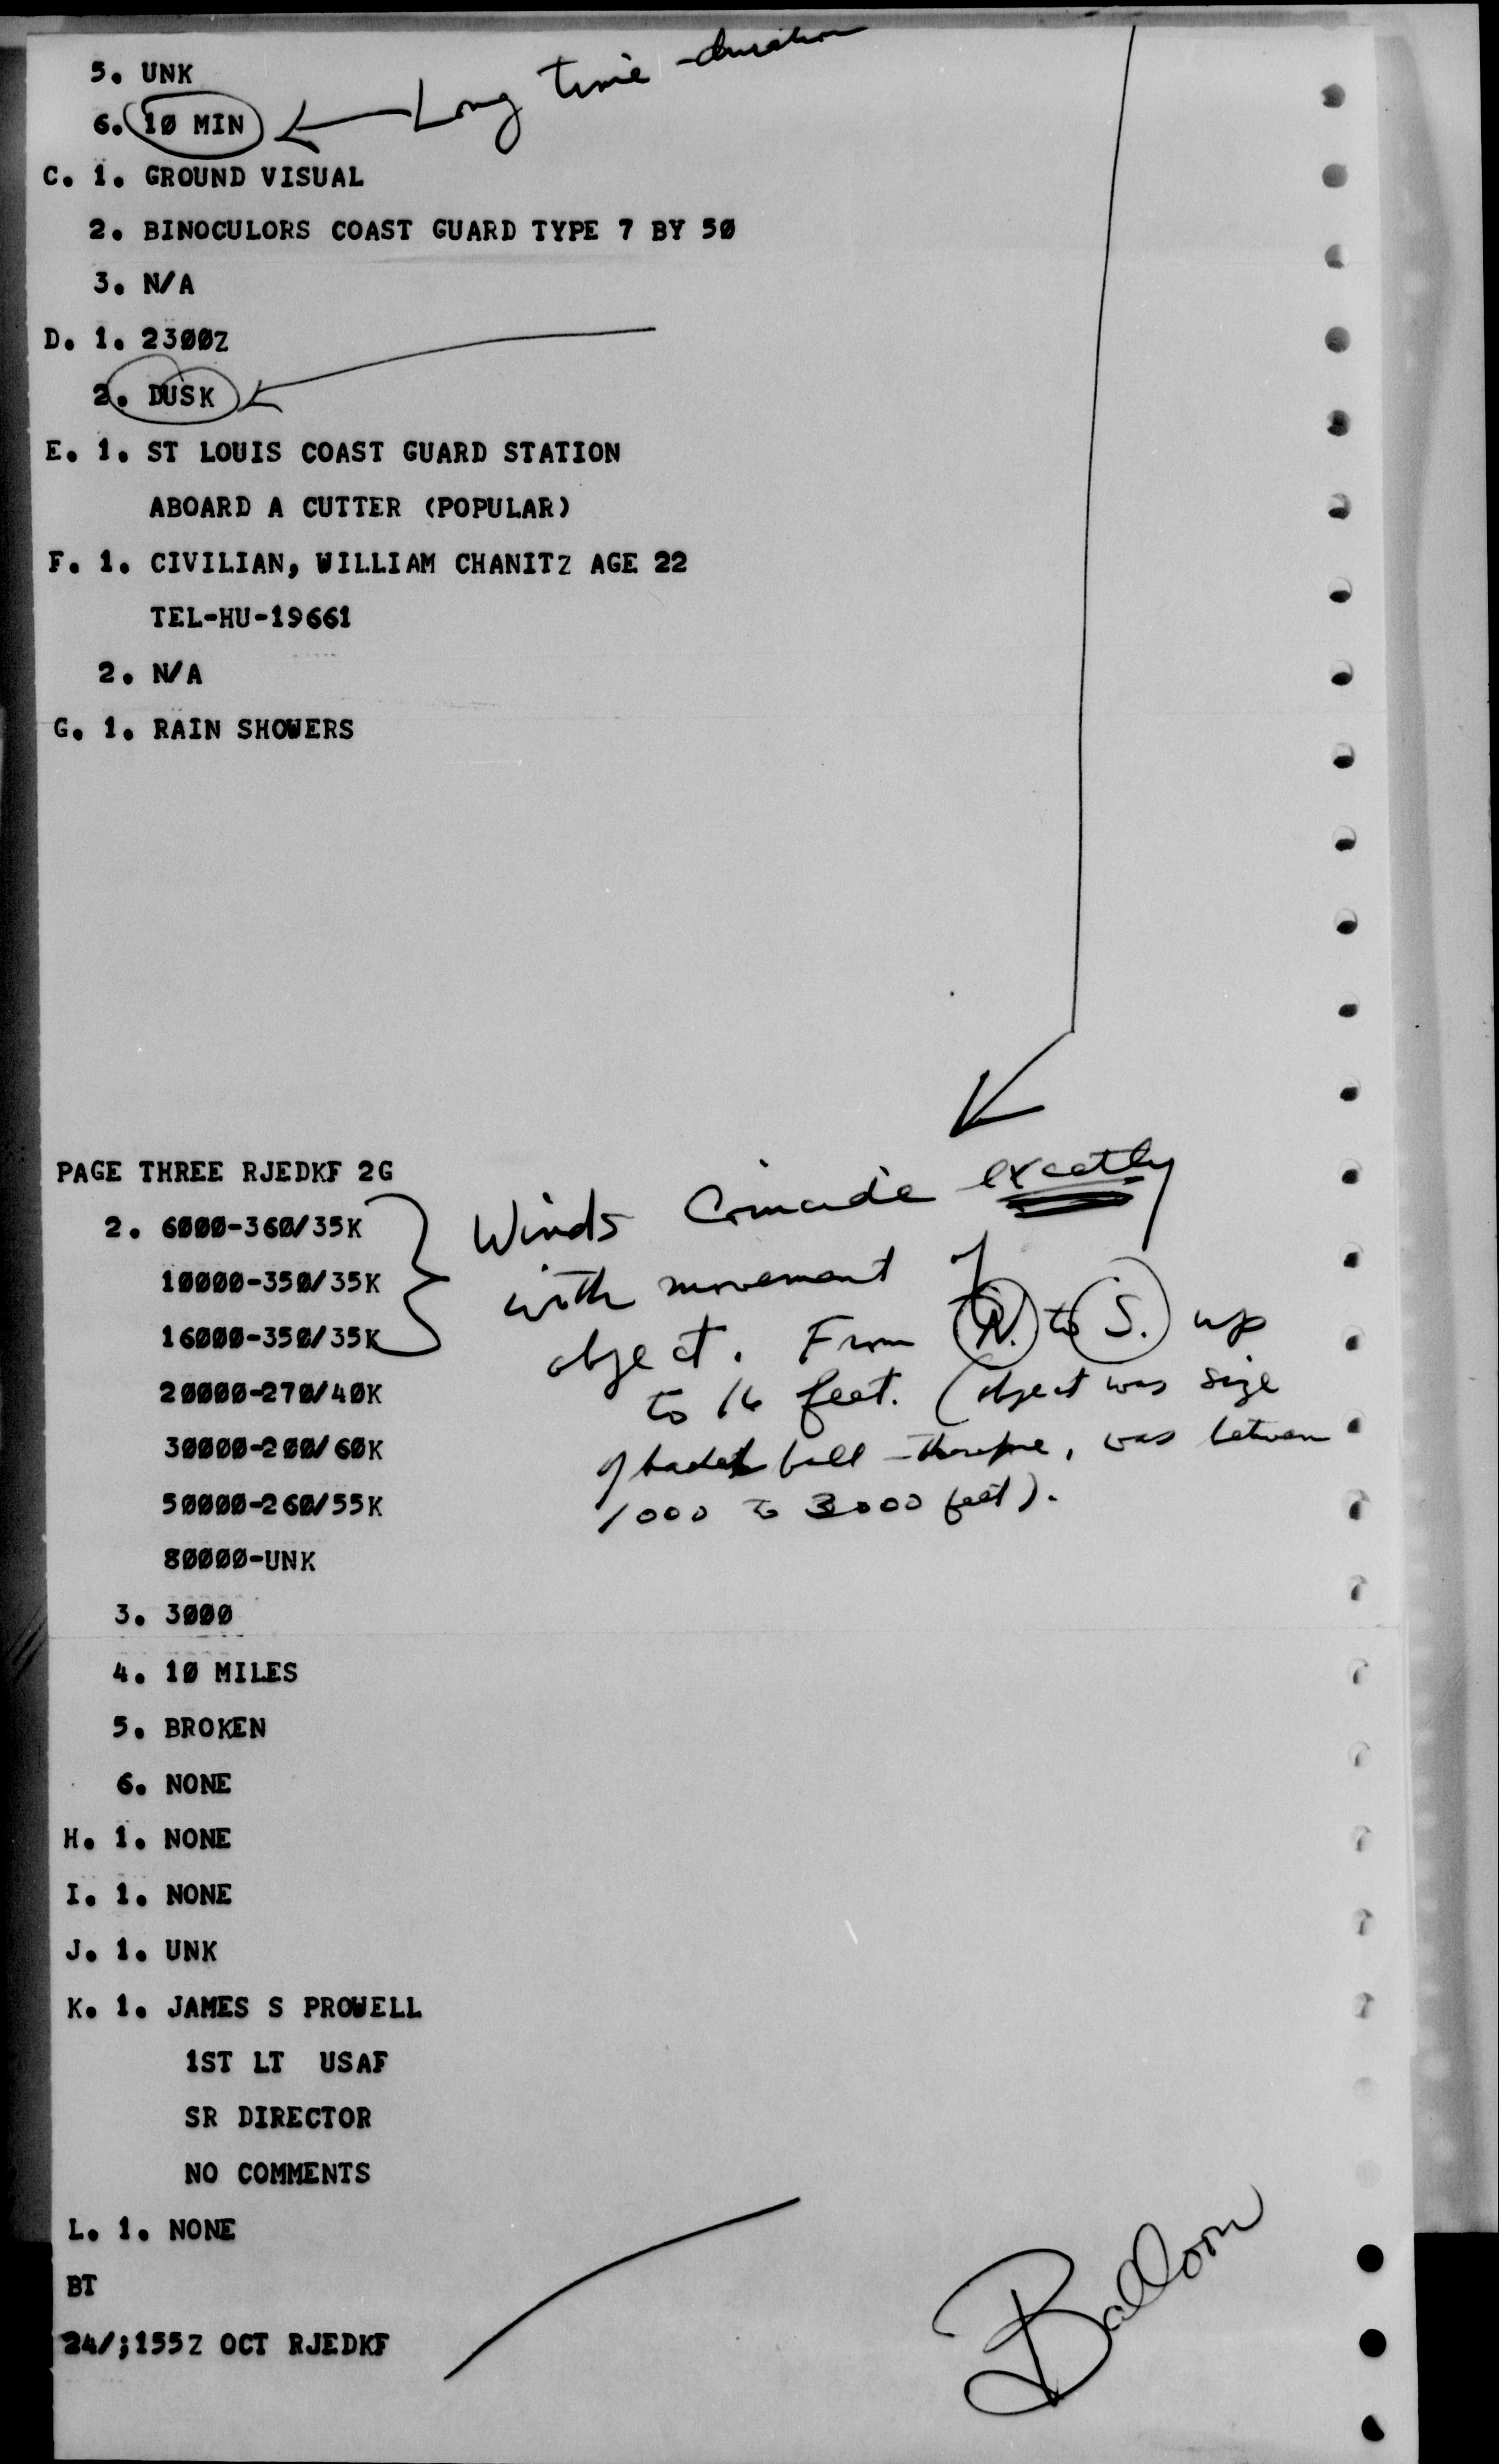 5. UNK
Long time duration
6. 10 MIN
C. 1. GROUND VISUAL
2. BINOCULORS COAST GUARD TYPE 7 BY 50
3. N/A
D. 1. 2300Z
2. DUSK
E. 1. ST LOUIS COAST GUARD STATION
ABOARD A CUTTER (POPULAR)
F. 1. CIVILIAN, WILLIAM CHANITZ AGE 22
TEL-HU-19661
2. N/A
G. 1. RAIN SHOWERS
PAGE THREE RJEDKF 2G
2. 6000-360/35K
10000-350/35K
16000-350/35K
20000-270/40K
30000-200/60K
50000-260/55K
80000-UNK
Winds Coincide exactly
with movement of
object. From N. to S. up
to 16 feet. (object was size
of basket ball - therefore, was between
1000 to 3000 feet).
3. 3000
4. 10 MILES
5. BROKEN
6. NONE
H. 1. NONE
I. 1. NONE
J. 1. UNK
K. 1. JAMES S PROWELL
1ST LT USAF
SR DIRECTOR
NO COMMENTS
L. 1. NONE
BT
24/;155Z OCT RJEDKF
Balloon